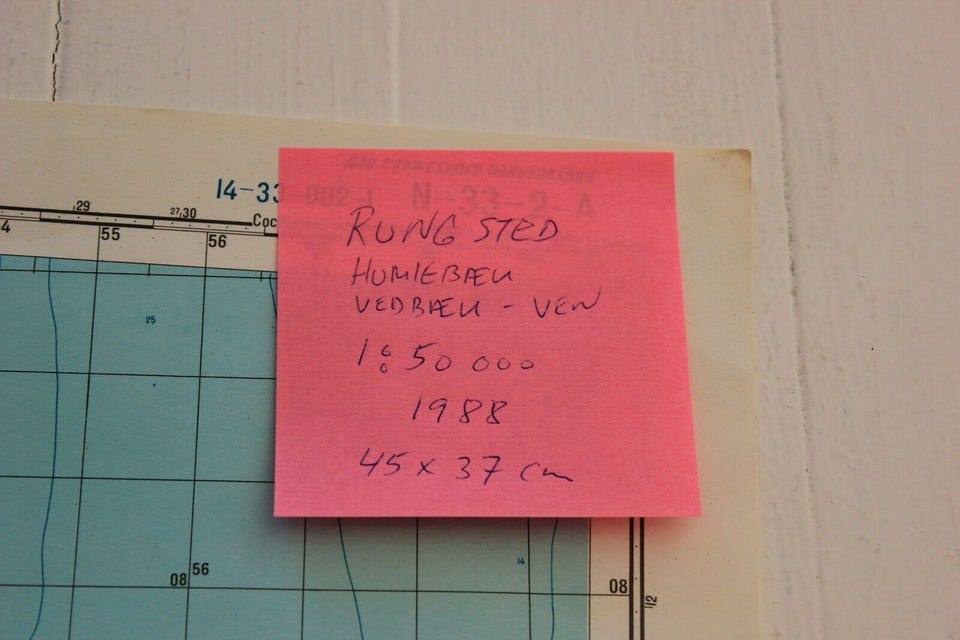 ДЛЯ СЛУЖЕБНОГО ПОЛЬЗОВАНИЯ
14-33-002-1 N-33-2-А
29 27,30 Сос
4 55 56
RUNGSTED
HUMLEBÆK
VEDBÆK - VEN
1:50 000
1988
45 x 37 cm
25
14
08 56 08
12